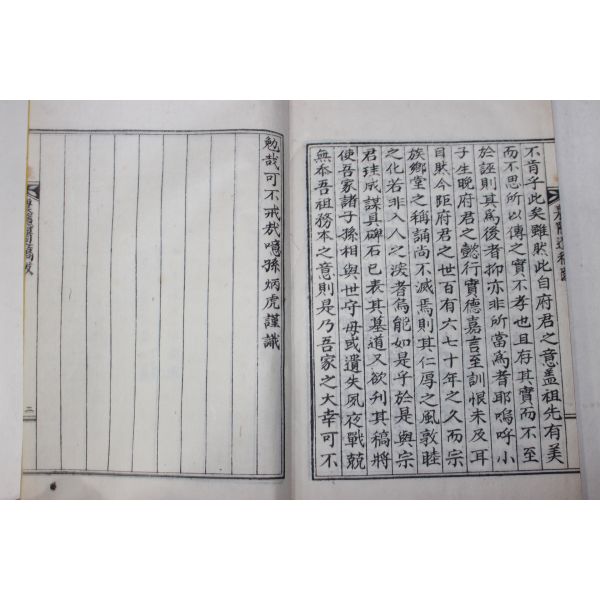 不肯乎此矣雖然此自府君之意盖祖先有美
而不思所以傳之實不孝也且存其實而不至
於誣則其爲後者抑亦非所當爲者耶嗚呼小
子生晚府君之懿行實德嘉言至訓恨未及耳
目然今距府君之世百有六七十年之久而宗
族鄉堂之稱誦尚不滅焉則其仁厚之風敦睦
之化若非入人之深者烏能如是乎於是與宗
君珪成謀具碑石已表其墓道又欲刊其稿將
使吾家諸子孫相與世守毋或遺失夙夜戰兢
無忝吾祖務本之意則是乃吾家之大幸可不
勉哉可不戒哉噫孫炳虎謹識
二